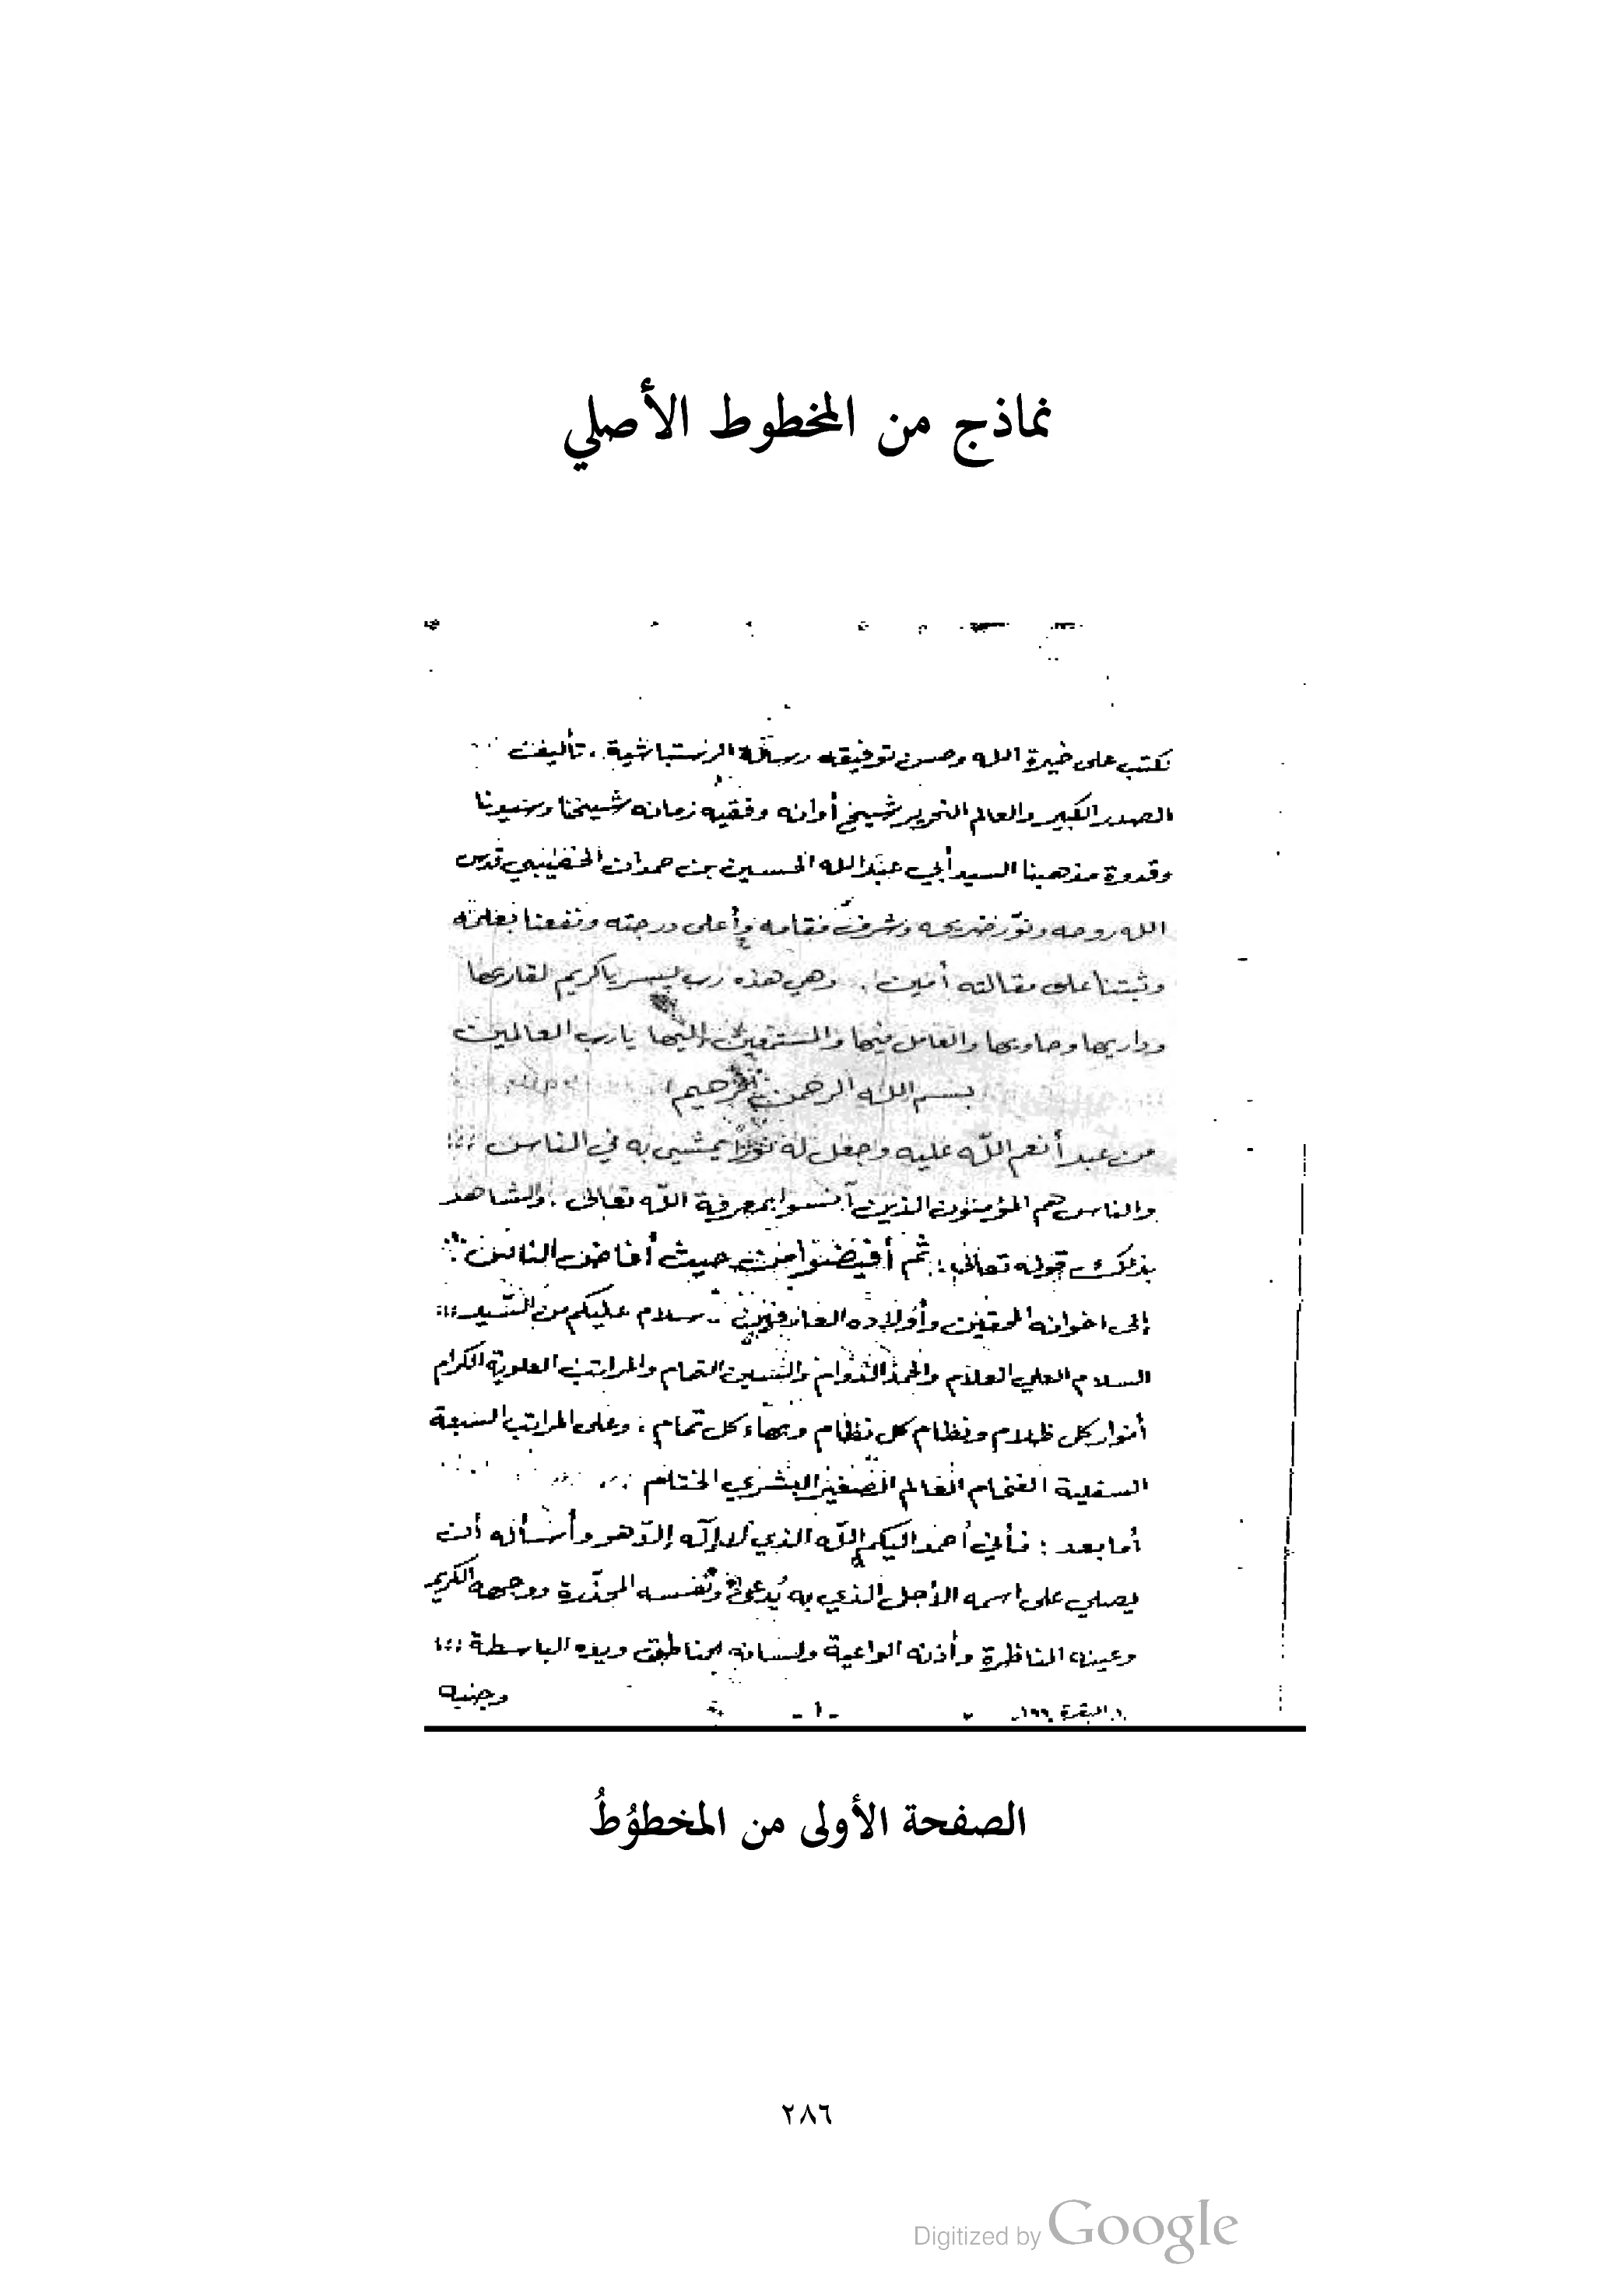 نماذج من المخطوط الأصلي
نكتب على خيرة الله وحسن توفيقه رسالة الرستباشية . تأليف
الصدر الكبير والعالم النحرير شيخ أوانه وفقيه زمانه شيخنا وسيدنا
وقدوة مذهبنا السيد أبي عبد الله الحسين بن حمدان الخصيبي قدس
الله روحه ونوّر ضريحه وشرف مقامه وأعلى درجته ونفعنا بعلمه
وثبتنا على مقالته أمين . وهي هذه رب يسر ياكريم لقارئها
وداريها وحاويها والعامل فيها والمستمعين إليها يارب العالمين
بسم الله الرحمن الرحيم
من عبد أنعم اللّه عليه وجعل له نوراً يمشي به في الناس
والناس هم المؤمنون الذين آنسوا بمعرفة اللّه تعالى . والشاهد
بذلك قوله تعالى : ثم أفيضوا من حيث أفاض الناس
إلى اخوانه المحقين وأولاده العارفين . سلام عليكم من السيد
السلام العلي العلام والحمد الدوام والسين التمام والمراتب العلوية الكرام
أنوار كل ظلام ونظام كل نظام وبهاء كل تمام : وعلى المراتب السبعة
السفلية الفخام العالم الصغير البشري الختام
أما بعد : فأني أحمد اليكم اللّه الذي لا إله إلا هو وأسأله أن
يصلي على اسمه الأجل الذي به يُدعى ونفسه المحذّرة ووجهه الكريم
وعينه الناظرة وأذنه الواعية ولسانه الناطق ويده الباسطة
وجنبه
١. البقرة ١٩٩. - ١ -
الصفحة الأولى من المخطوُطُ
٢٨٦
Digitized by Google